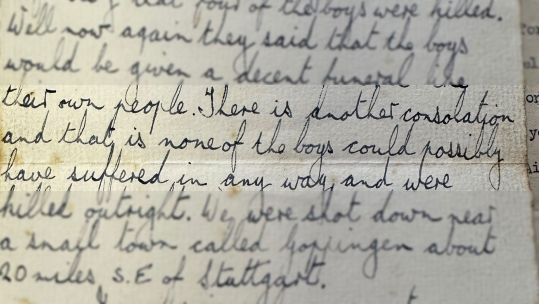 that four of the boys were killed.
Well now again they said that the boys
would be given a decent funeral like
their own people. There is another consolation
and that is none of the boys could possibly
have suffered in any way, and were
killed outright. We were shot down near
a small town called Goppingen about
20 miles S.E of Stuttgart.